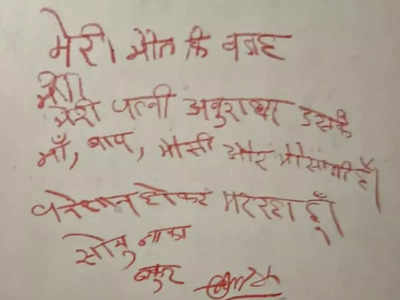 मेरी मौत कि वजह
मेरी
मेरी पत्नी अनुराधा उसके
माँ, बाप, मौसी और मौसा जी है।
परेशान होकर मर रहा हूँ।
सोमु